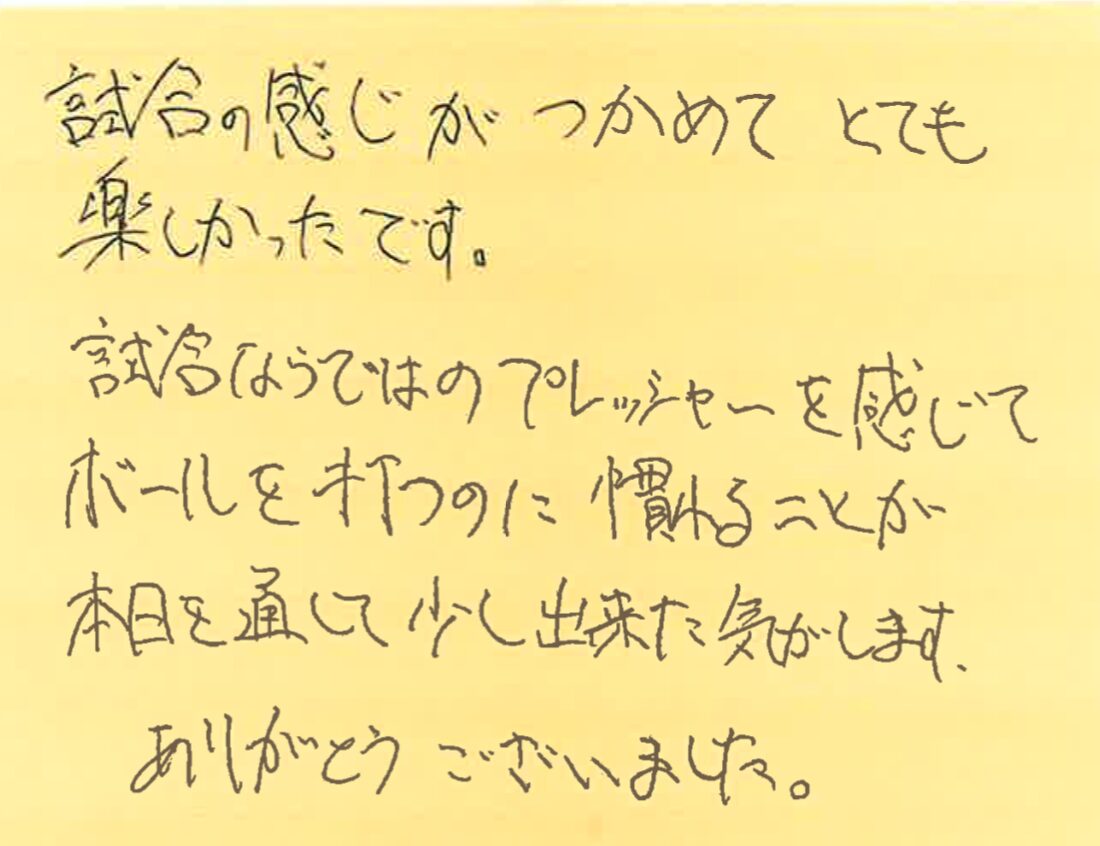 試合の感じがつかめてとても
楽しかったです。
試合ならではのプレッシャーを感じて
ボールを打つのに慣れることが
本日を通して少し出来た気がします、
ありがとうございました。